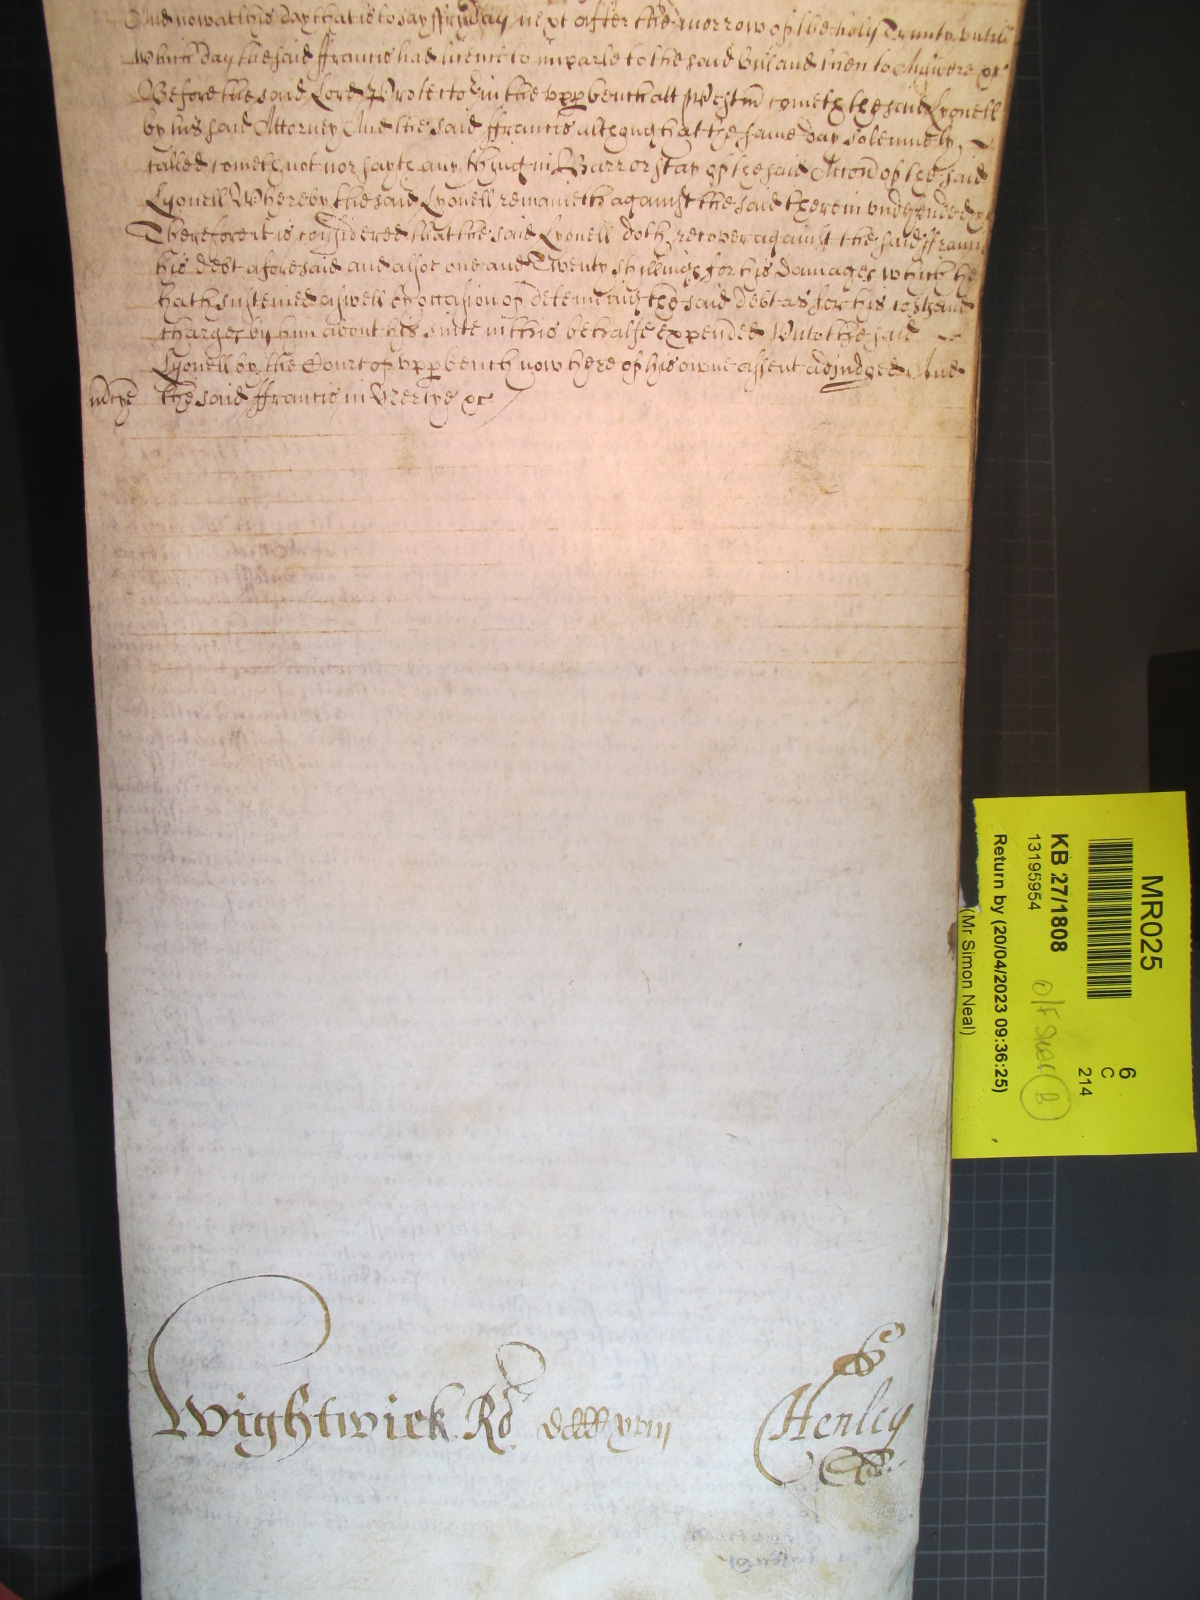 And now at this day that is to say ffryday next after the morrow of the holy Trinity untill
which day the said ffrancis had licence to imparle to the said bill and then to Answere &c
Before the said Lord Protector in the upp bench att Westm cometh the said Lyonell
by his said Attorney And the said ffrancis although at the same day solemnely
called cometh not nor sayth any thing in Barr or stay of the said Accon of the said
Lyonell Whereby the said Lyonell remaineth against the said therein undefended &c
Therefore it is considered that the said Lyonell doth recover against the said ffrancis
his debt aforesaid and alsoe one and Twenty shillings for his damages which he
hath susteined aswell by occasion of deteineing the said debt as for his costs and
charges by him about his suite in this behalfe expended Unto the said
Lyonell by the Court of upp bench now here of his owne assent adjudged And
the said ffrancis in Mercye &c
Wightwick Rd xviii
Henley
MR025
KB 27/1808
13195954
Return by (20/04/2023 09:36:25)
(Mr Simon Neal)
6
C
214
B